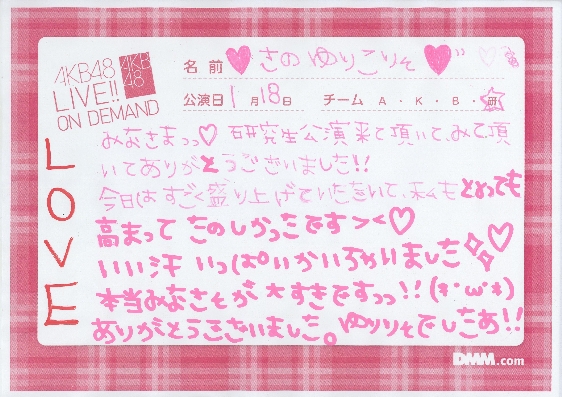 AKB48
LIVE!!
ON DEMAND
AKB
48
名前 ♡ さの ゆりこりそ ♡
公演日 1月18日 チーム A・K・B・研
LOVE
みなさまっっ♡ 研究生公演来て頂いて、みて頂
いてありがとうございました!!
今日はすごく盛り上げていただいて、私もとっても
高まって たのしかったです><♡
いい汗 いっぱいかいちゃいました
本当みなさそが大すきですっっ!!(*･ω･*)
ありがとうございました。ゆりりそでしたあ!!
DMM.com